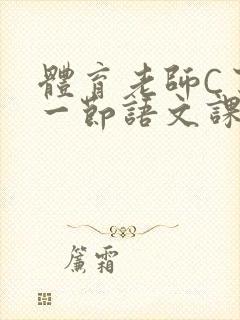 體育老師C了
一節語文課
簾霜